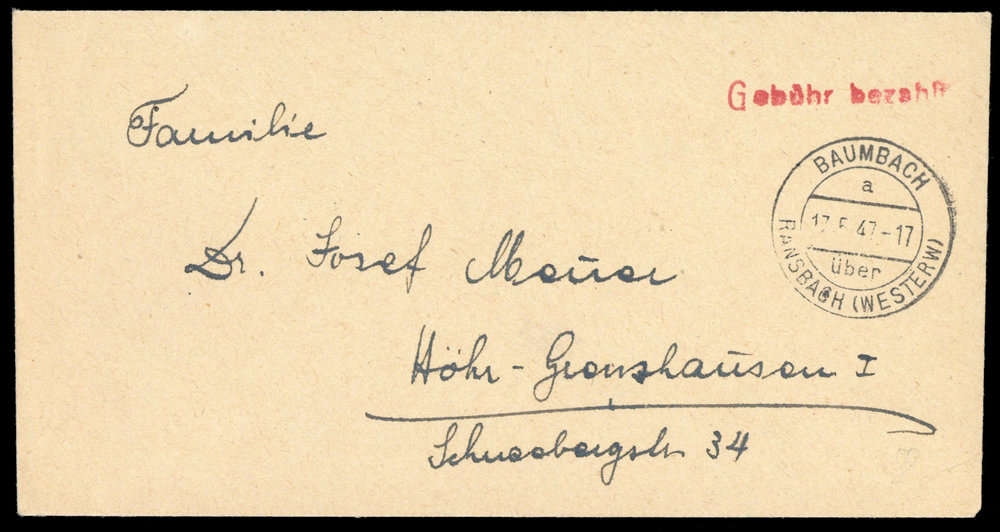 Gebühr bezahlt
BAUMBACH
a
17.5.47.-17
über
RANSBACH (WESTERW)
Familie
Dr. Josef Mauer
Höhr-Grenzhausen I
Schneebergstr 34